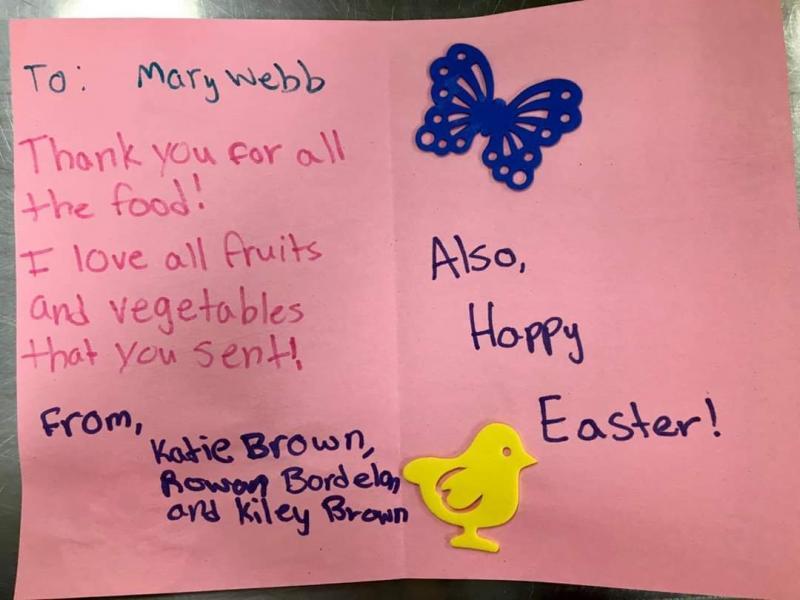 To: Mary Webb
Thank you for all
the food!
I love all fruits
and vegetables
that you sent!
From,
Katie Brown,
Rowan Bordelon,
and Kiley Brown
Also,
Happy
Easter!